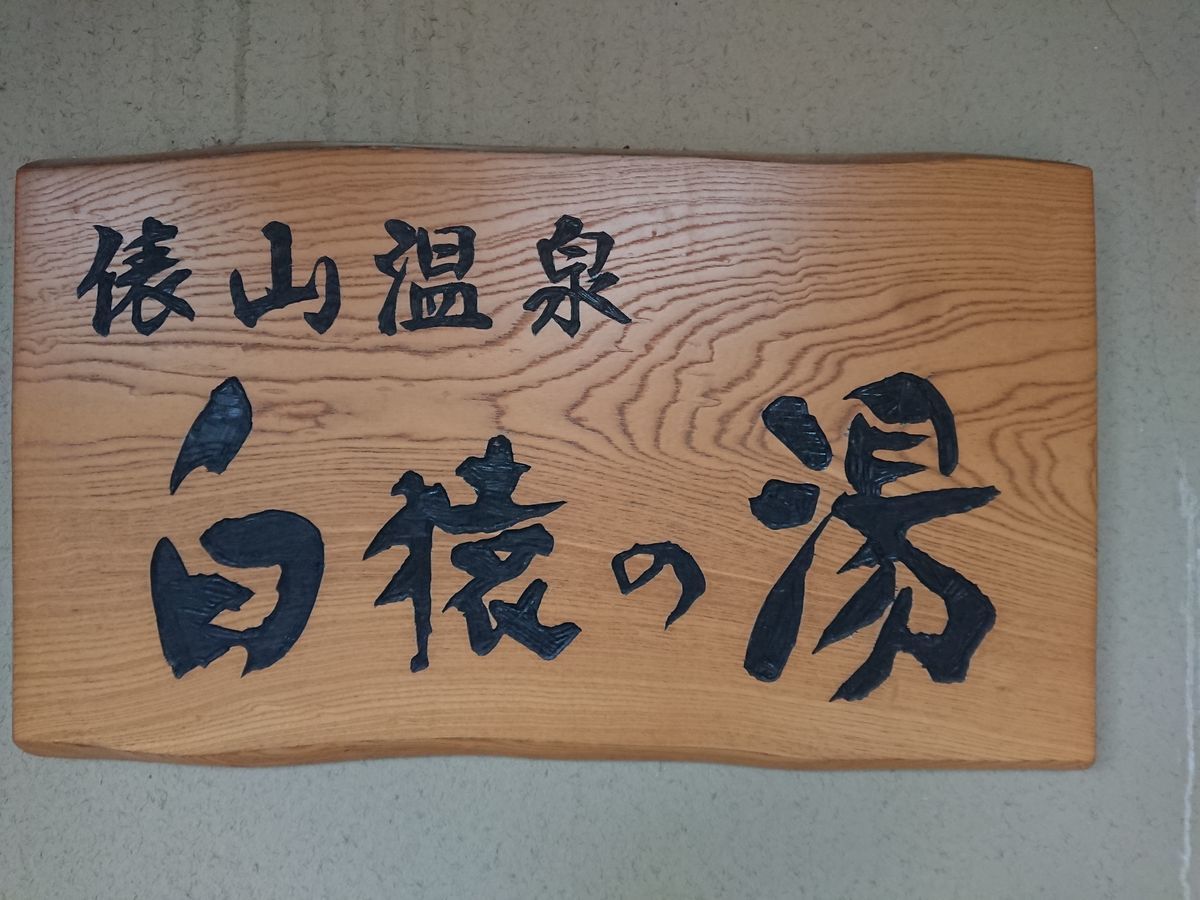 俵山温泉
白猿の湯